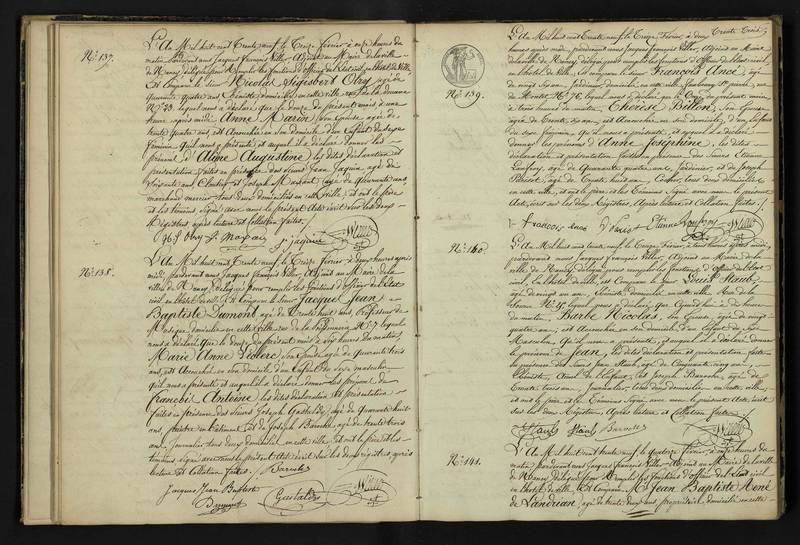 N.º 137.
L'An Mil huit cent Trente neuf, le Treize Février, à onze heures du
matin, Pardevant nous Jacques François Villers, Adjoint au Maire de la ville
de Nancy, délégué pour remplir les fonctions d'Officier de l'état civil, en l'hôtel de Ville,
Est Comparu le Sieur Nicolas Sigisbert Obry, âgé de
quarante quatre ans,
N.º 33, lequel nous a déclaré que le douze du présent mois à une
heure après midi, Anne Marin, son Epouse, âgée de
trente quatre ans, est Accouchée en son domicile d'un Enfant du sexe
féminin, qu'il nous présente, et auquel il a déclaré donner les
prénoms d'Aline Augustine, les dites déclaration et
présentation faites en présence des sieurs Jean Jaquin, âgé de
soixante ans, et Joseph Mangant, âgé de quarante ans,
marchand mercier, tous deux domiciliés en cette ville, et ont le père
et les témoins signé avec nous le présent Acte écrit sur les deux
Registres, après lecture et Collation faites.
N.º 138.
L'An Mil huit cent Trente neuf, le Treize Février, à deux heures après
midi, pardevant nous Jacques François Villers, Adjoint au Maire de la
ville de Nancy, délégué pour remplir les fonctions d'officier de l'état
civil en l'hôtel de ville, Est Comparu le sieur Jacques Jean
Baptiste Dumont, âgé de Trente huit ans, Professeur de
Musique, domicilié en cette ville, rue de la N.º 7, lequel
nous a déclaré que le douze du présent mois à six heures du matin,
Marie Anne Leclerc, son Epouse, âgée de quarante trois
ans, est Accouchée en son domicile d'un Enfant du sexe masculin
qu'il nous présente, et auquel il a déclaré donner les prénoms de
François Antoine, les dites déclaration et présentation
faites en présence des sieurs Joseph Gastaldy, âgé de quarante huit
ans, peintre en bâtiment, et de Joseph Baroche, âgé de trente trois
ans, Journalier, tous deux domiciliés en cette ville, et ont le père et les
témoins signé avec nous le présent Acte écrit sur les deux registres, après
lecture et Collation faites.
Jacques Jean Baptiste
Dumont
Gastaldy
N.º 139.
L'An Mil huit cent Trente neuf, le Treize Février, à deux
heures après midi, pardevant nous Jacques François Villers, Adjoint au Maire
de la ville de Nancy, délégué pour remplir les fonctions d'officier de l'état civil
en l'hôtel de ville, est comparu le sieur François Ancé, âgé
de vingt Six ans, Jardinier, domicilié en cette ville, faubourg St. pierre, rue
N.º 76, lequel nous a déclaré que le du présent mois,
à trois heures du matin, Thérèse Billon, son Epouse,
âgée de Trente six ans, est Accouchée en son domicile, d'un Enfant
du sexe féminin, qu'il nous a présenté, et auquel il a déclaré
donner les prénoms d'Anne Joséphine, les dites
déclaration et présentation faites en présence des Sieurs Etienne
âgé de Quarante quatre ans, Jardinier, et de Joseph
âgé de Trente huit ans, tous deux domiciliés
en cette ville, et ont le père et les témoins Signé avec nous le présent
Acte, écrit sur les deux Registres, Après lecture et Collation faites.
françois ancé
N.º 140.
L'An Mil huit cent trente neuf, le Treize Février, à trois heures après midi,
pardevant nous Jacques François Villers, Adjoint au Maire de la
ville de Nancy, délégué pour remplir les fonctions d'officier de l'état
civil, en l'hôtel de ville, est comparu le sieur Louis Staub,
âgé de vingt six ans, Ebéniste, domicilié en cette ville, Rue de
N.º 4, lequel nous a déclaré que Aujourd'hui à dix heures
du matin, Barbe Nicolas, son Epouse, âgée de vingt
quatre ans, est Accouchée en son domicile d'un Enfant du Sexe
Masculin, qu'il nous a présenté, et auquel il a déclaré donner
le prénom de Jean, les dites déclaration et présentation faites
en présence des Sieurs Jean Staub, âgé de Cinquante cinq ans,
Ebéniste, Aïeul de l'Enfant, et Joseph Baroche, âgé de
Trente trois ans, Journalier, tous deux domiciliés en cette ville,
et ont le père et les témoins Signé avec nous le présent Acte, écrit
sur les deux Registres, Après lecture et Collation faites.
Staub Staub Baroche
N.º 141.
L'An Mil huit cent trente neuf, le Quatorze Février, à onze heures du
matin, pardevant nous Jacques François Villers, Adjoint au Maire de la ville
de Nancy, délégué pour Remplir les fonctions d'officier de l'état civil
en l'hôtel de ville, Est Comparu Mr. Jean Baptiste René
de Landrian, âgé de trente deux ans, propriétaire, domicilié en cette